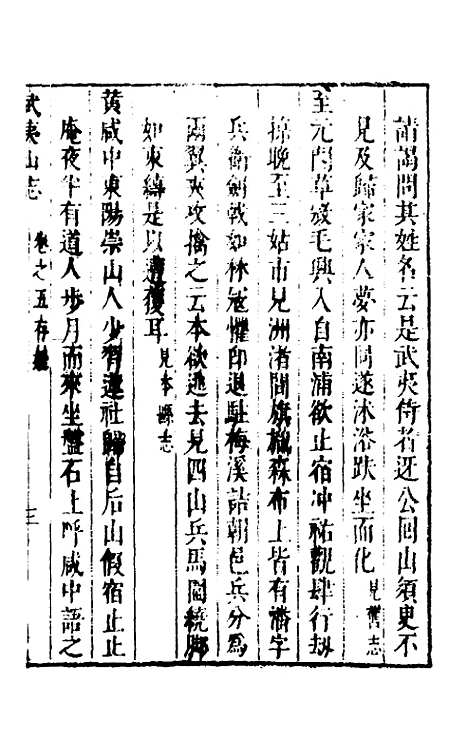 請謁問其姓名云是武夷侍者迓公回山須臾不
見及歸家家人夢亦同遂沐浴趺坐而化見舊志
至元間草寇毛興入自南浦欲止宿冲祐觀肆行刼
掠晚至三姑市見洲渚間旗幟森布上皆有潘字
兵衛劍戟如林寇懼卽退駐梅溪詰朝邑兵分爲
兩翼夾攻擒之云本欲逃去見四山兵馬圍繞脚
如束縛是以遭獲耳見本縣志
黃咸中東陽崇山人少有蓮社歸自后山假宿止止
庵夜半有道人步月而來坐盤石上呼咸中語之
武夷山志 卷之五 三